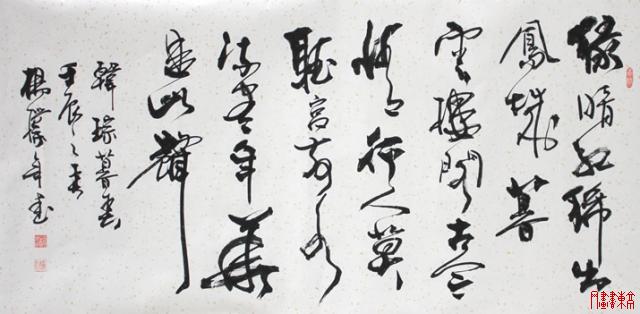 綠暗紅稀出
鳳城暮
雲樓閣古今
情行人莫
聽宮前水
流尽年華
是此聲
韓琮暮春
壬辰之春